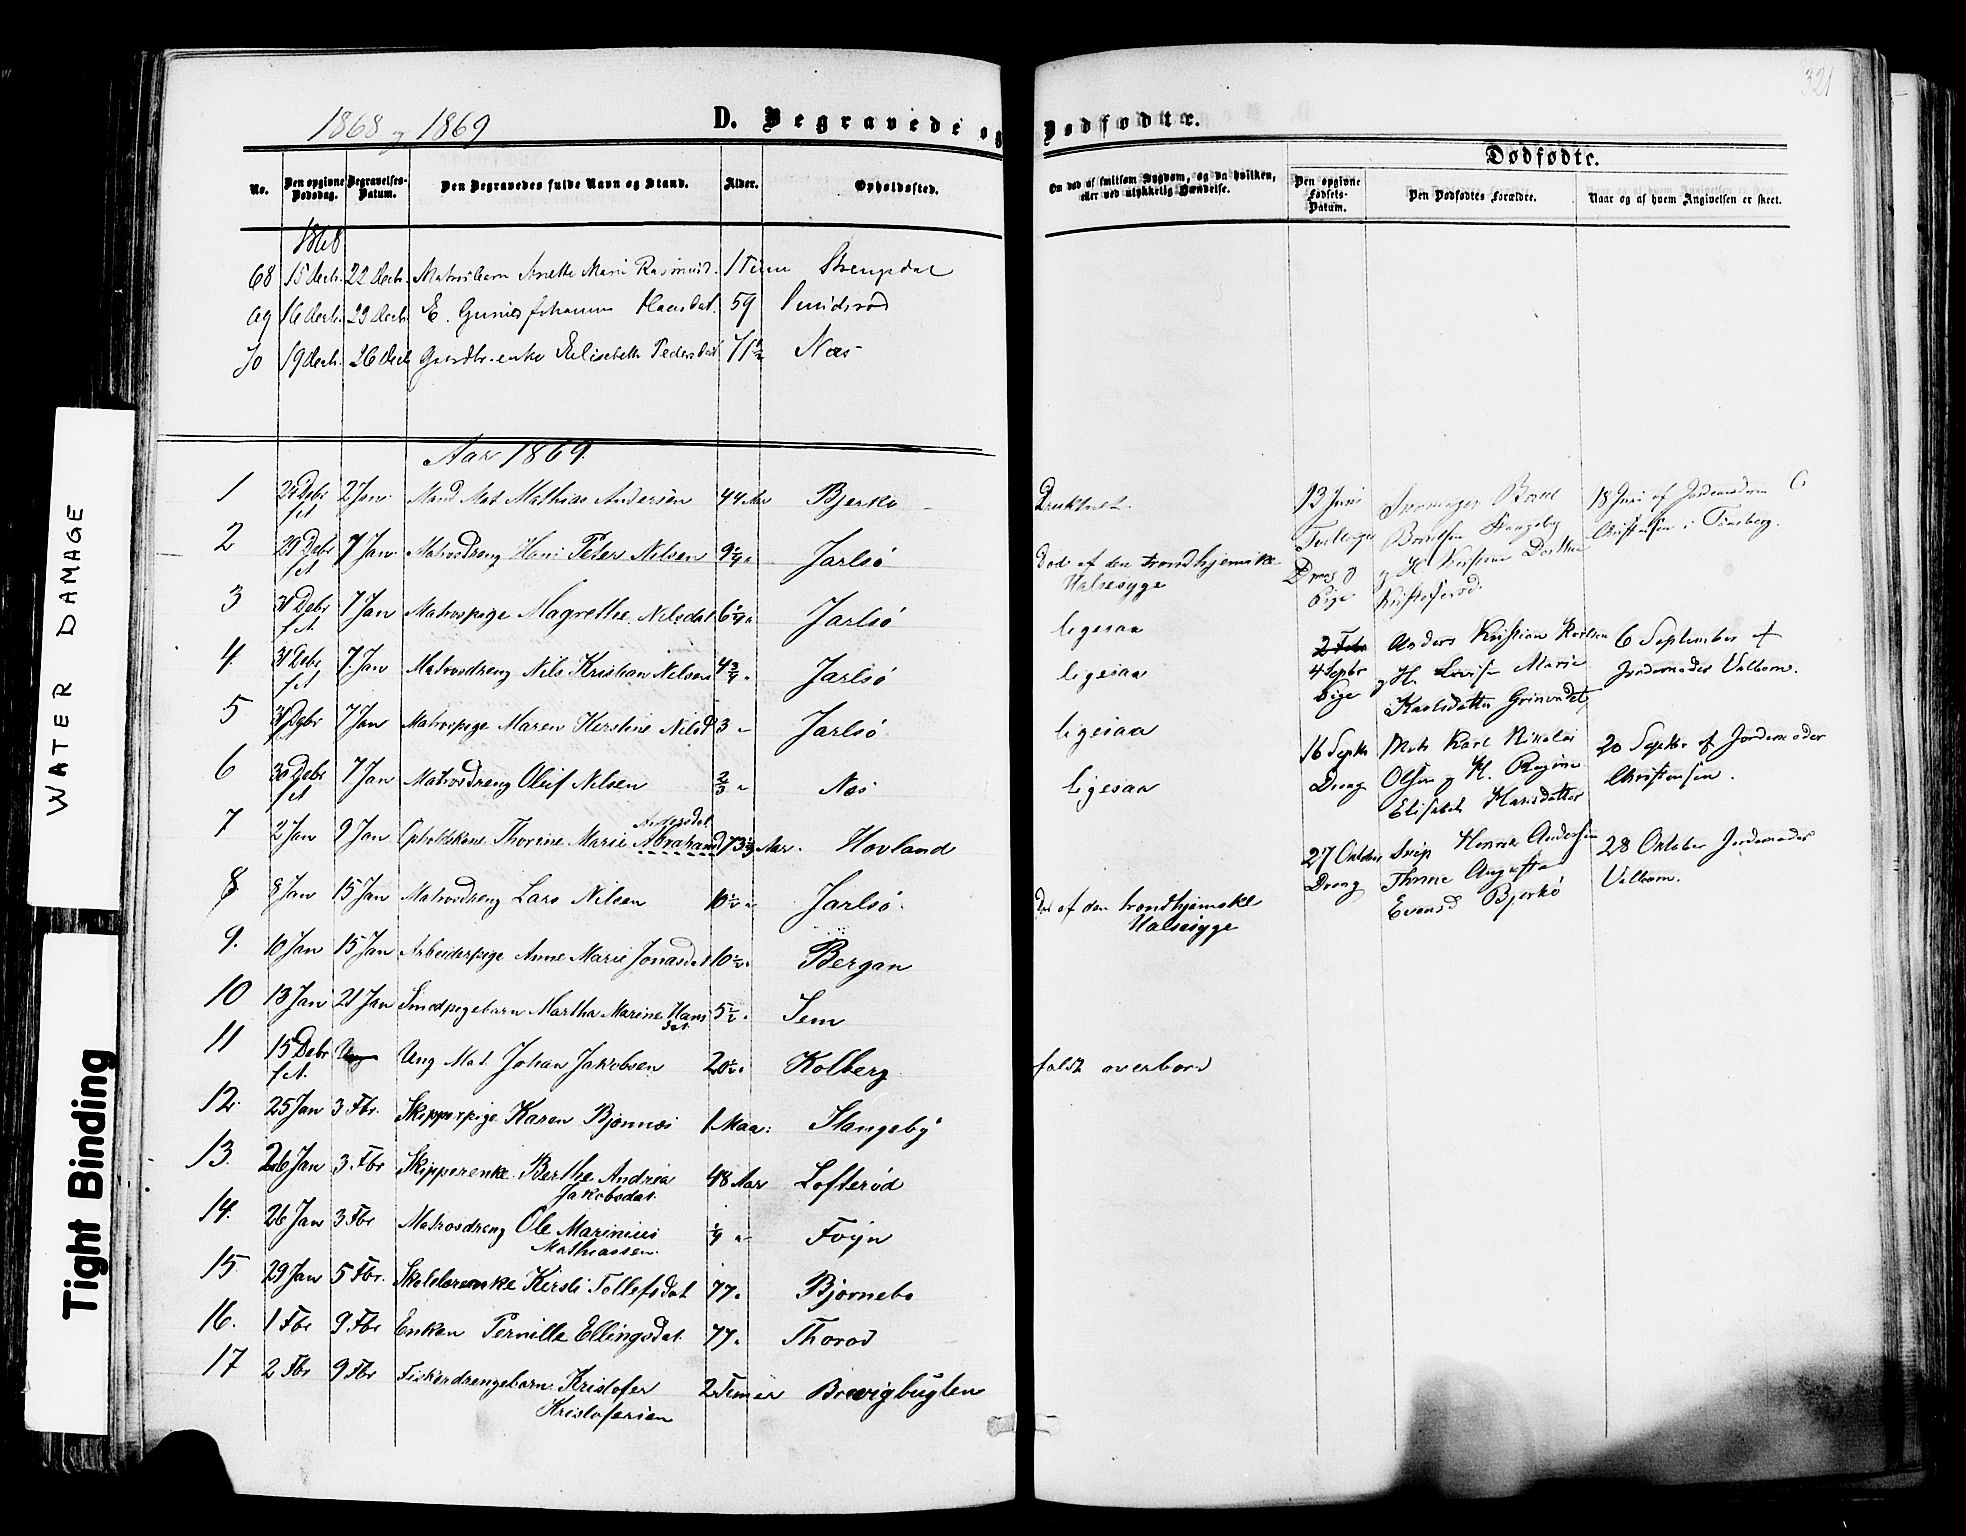 321
1868 og 1869
D. Begravede og Dødfødte.
Dødfødte.
No. Den opgivne Dødsdag. Begravelses-Datum. Den Begravedes fulde Navn og Stand. Alder. Opholdssted. Om død af smitsom Sygdom, og da hvilken, eller ved ulykkelig Hændelse. Den opgivne Fødsels-Datum. Den Dødfødtes Forældre. Naar og af hvem Angivelsen er skeet.
1868
68 15 Decb. 22 Decb. Matrosbarn Anette Marie Rasmusd. 1 Time
69 16 Decb. 29 Decb. E. Johanne Hansdat. 59
70 19 Decb. 26 Decb Gaardbr.enke Elisabeth Pedersdat 71½ Næs
Aar 1869.
1 Debr 2 Jan Mand Mat Mathias Andersen 44 Aar Bjerkø Druknet.
f.A.
2 29 Debr 7 Jan Matrosdreng Hans Peter Nilsen 9¼ " Jarlsø Død af den trondhjemske
f.A. Halsesyge
3 31 Debr 7 Jan Matrospige Magrethe Nilsdat 6 Jarlsø ligesaa
f.A.
4. 31 Debr 7. Jan Matrosdreng Nils Kristian Nilsen 4¾ " Jarlsø ligesaa
f.A.
5 Debr 7 Jan Matrospige Maren Kirstine Nilsd 3 " Jarlsø ligesaa
6 30 Debr 7 Jan Matrosdreng Oluf Nilsen ⅔ " Næs ligesaa
f.A.
Andersdat
7 2 Jan 9 Jan Opholdskone Thorine Marie Abrahamsd 73⅓ Aar. Hovland
8 8 Jan 15 Jan Matrosdreng Lars Nilsen 10½ " Jarlsø. Død af den trondhjemske
Halsesyge
9. 10 Jan 15 Jan Arbeiderpige Anne Marie Jonasdat 10½ " Bergan
10 13 Jan 21 Jan Smedpigebarn Martha Marine Hans 5½ " Sem
dat
11 15 Debr Ung Ung Mat. Johan Jakobsen 20½ " Kolberg faldt overbord
f.A.
12. 25 Jan 3 Fbr. Skipperpige Karen Bjønnes 1 Maa: Stangeby
13. 26 Jan 3. Fbr Skipperenke Berthe Andrea 48 Aar Lofterød
Jakobsdat.
14. 26 Jan 3 Fbr Matrosdreng Ole Marinius ¼ " Føyn
Mathiassen.
15 29 Jan 5 Fbr. Skolelærerenke Kirsti Tollefsdat 77 " Bjørnebo
16. 1 Fbr 9 Fbr Enken Pernille Ellingsdat. 77 " Thorød
17 2 Fbr 9 Fbr Fiskerdrengebarn Kristofer 2 Timer Brevigbugten
Kristofersen
13 Juni 18 Juni af Jordemoderen C
Tvillinger Christensen i Tønsberg.
Dreng og
Pige Kristoferød.
2 Febr Anders Kristian Karlsen 6 September af
4 Septbr og H. Lovise Marie Jordemoder Valbom.
Pige Karlsdatter Grimestad
16 Septbr Mat. Karl Nikolai 20 Septbr af Jordemoder
Dreng Olsen og H. Regine Christensen.
Elisabeth Hansdatter
27 Oktober Henrik Andersen 28 Oktober Jordemoder
Dreng Thrine Augusta Valbom.
Evensd Bjerkø
WATER DAMAGE
Tight Binding